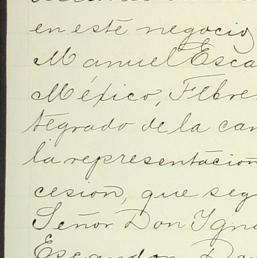 en este negocio,
Manuel Esca
México, Febre
tegrado de la can
la representación
cesión, que seg
Señor Don Igna
Escandon, Don